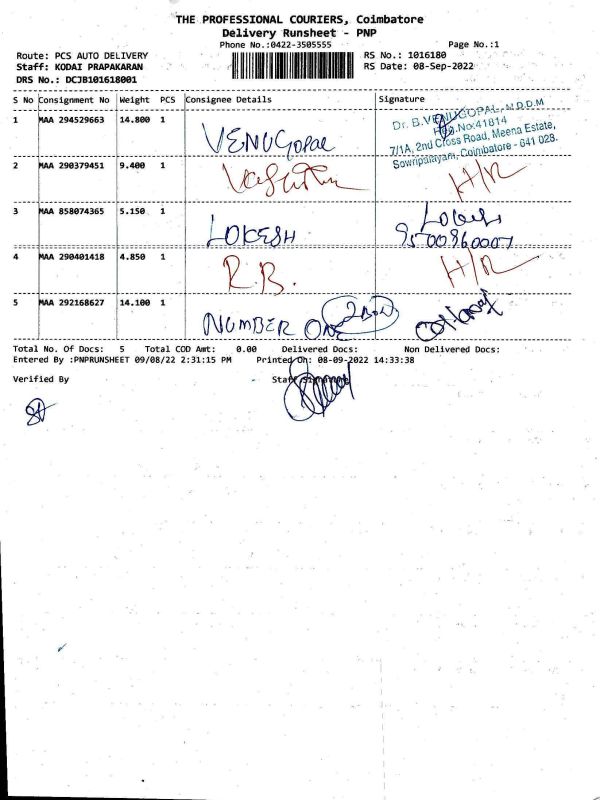 THE PROFESSIONAL COURIERS, Coimbatore
Delivery Runsheet - PNP
Phone No.:0422-3505555
Page No.:1
Route: PCS AUTO DELIVERY
RS No.: 1016180
Staff: KODAI PRAPAKARAN
RS Date: 08-Sep-2022
DRS No.: DCJB101618001
S No Consignment No Weight PCS Consignee Details Signature
1 MAA 294529663 14.800 1 VENUGOPAL
Dr. B.VENUGOPAL, M.D.D.M
Reg.No:41814
7/1A, 2nd Cross Road, Meena Estate,
Sowripalayam, Coimbatore - 641 028.
2 MAA 290379451 9.400 1 H/R
3 MAA 858074365 5.150 1 LOKESH Lokesh
9500960007
4 MAA 290401418 4.850 1 R.B. H/R
5 MAA 292168627 14.100 1 NUMBER ONE
Total No. Of Docs: 5 Total COD Amt: 0.00 Delivered Docs: Non Delivered Docs:
Entered By :PNPRUNSHEET 09/08/22 2:31:15 PM Printed On: 08-09-2022 14:33:38
Verified By Staff Signature